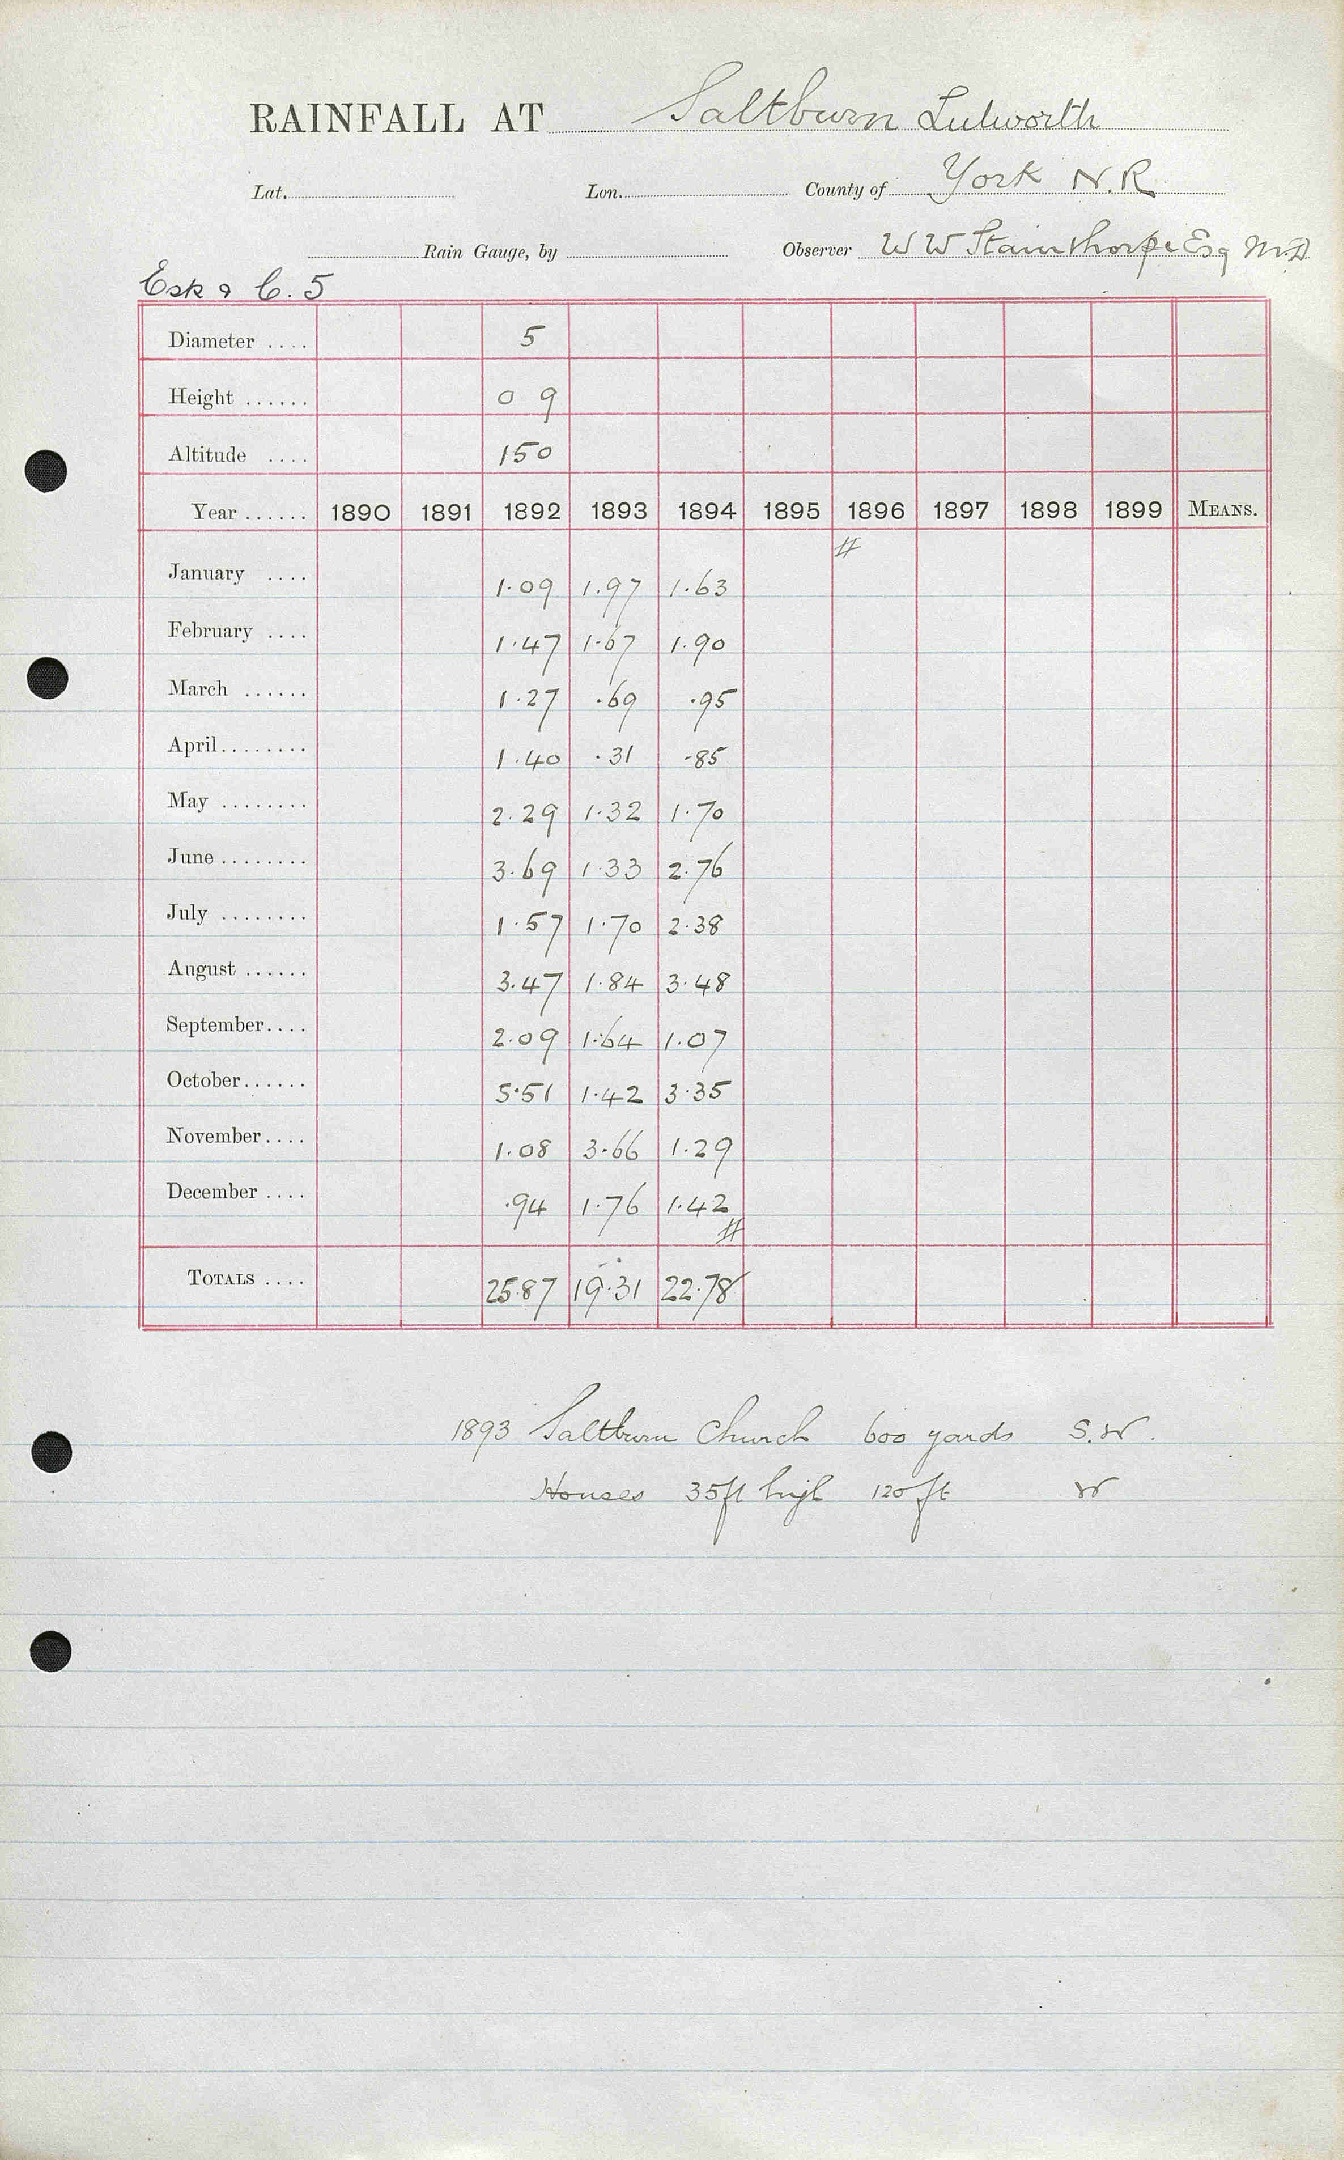 RAINFALL AT Saltburn Lulworth
Lat. Lon. County of York N.R
Rain Gauge, by Observer W W Stainthorpe Esq M.D
Esk & C. 5
Diameter .... 5
Height ...... 0 9
Altitude .... 150
Year ...... 1890 1891 1892 1893 1894 1895 1896 1897 1898 1899 MEANS.
#
January .... 1.09 1.97 1.63
February .... 1.47 1.67 1.90
March ...... 1.27 .69 .95
April........ 1.40 .31 .85
May ........ 2.29 1.32 1.70
June ........ 3.69 1.33 2.76
July ........ 1.57 1.70 2.38
August ...... 3.47 1.84 3.48
September.... 2.09 1.64 1.07
October...... 5.51 1.42 3.35
November.... 1.08 3.66 1.29
December .... .94 1.76 1.42
#
TOTALS .... 25.87 19.31 22.78
1893 Saltburn Church 600 yards S.W.
Houses 35ft high 120 ft W